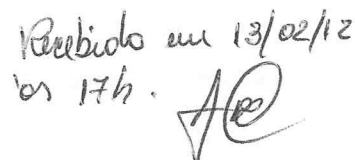 Recebido em 13/02/12
às 17h.